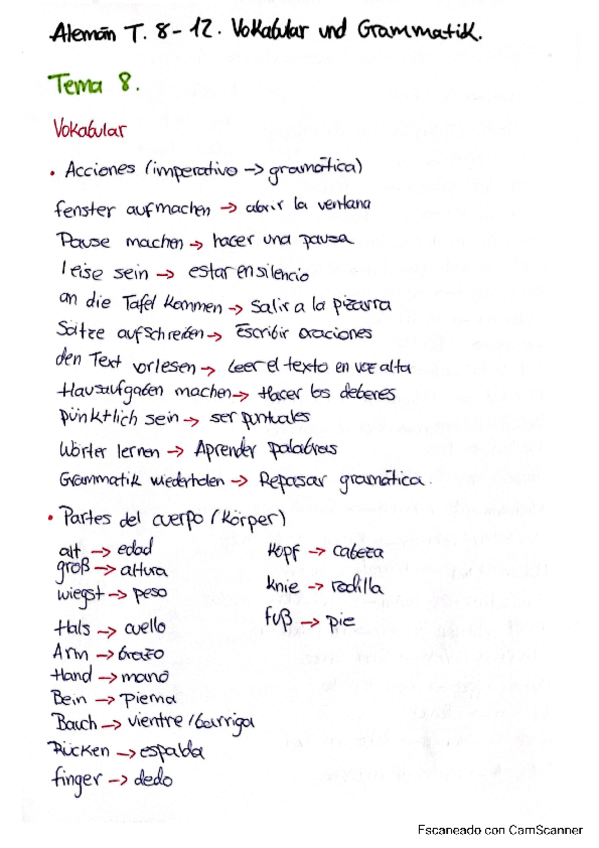 Alemán T. 8-12. Vokabular und Grammatik.
Tema 8.
Vokabular
• Acciones (imperativo → gramática)
fenster aufmachen → abrir la ventana
Pause machen → hacer una pausa
leise sein → estar en silencio
an die Tafel kommen → Salir a la pizarra
Sätze aufschreiben → Escribir oraciones
den Text vorlesen → Leer el texto en voz alta
Hausaufgaben machen → Hacer los deberes
pünktlich sein → ser puntuales
Wörter lernen → Aprender palabras
Grammatik wiederholen → Repasar gramática.
• Partes del cuerpo (Körper)
alt → edad
groß → altura
wiegst → peso
Hals → cuello
Arm → brazo
Hand → mano
Bein → pierna
Bauch → vientre / barriga
Rücken → espalda
finger → dedo
Kopf → cabeza
Knie → rodilla
fuß → pie
Escaneado con CamScanner